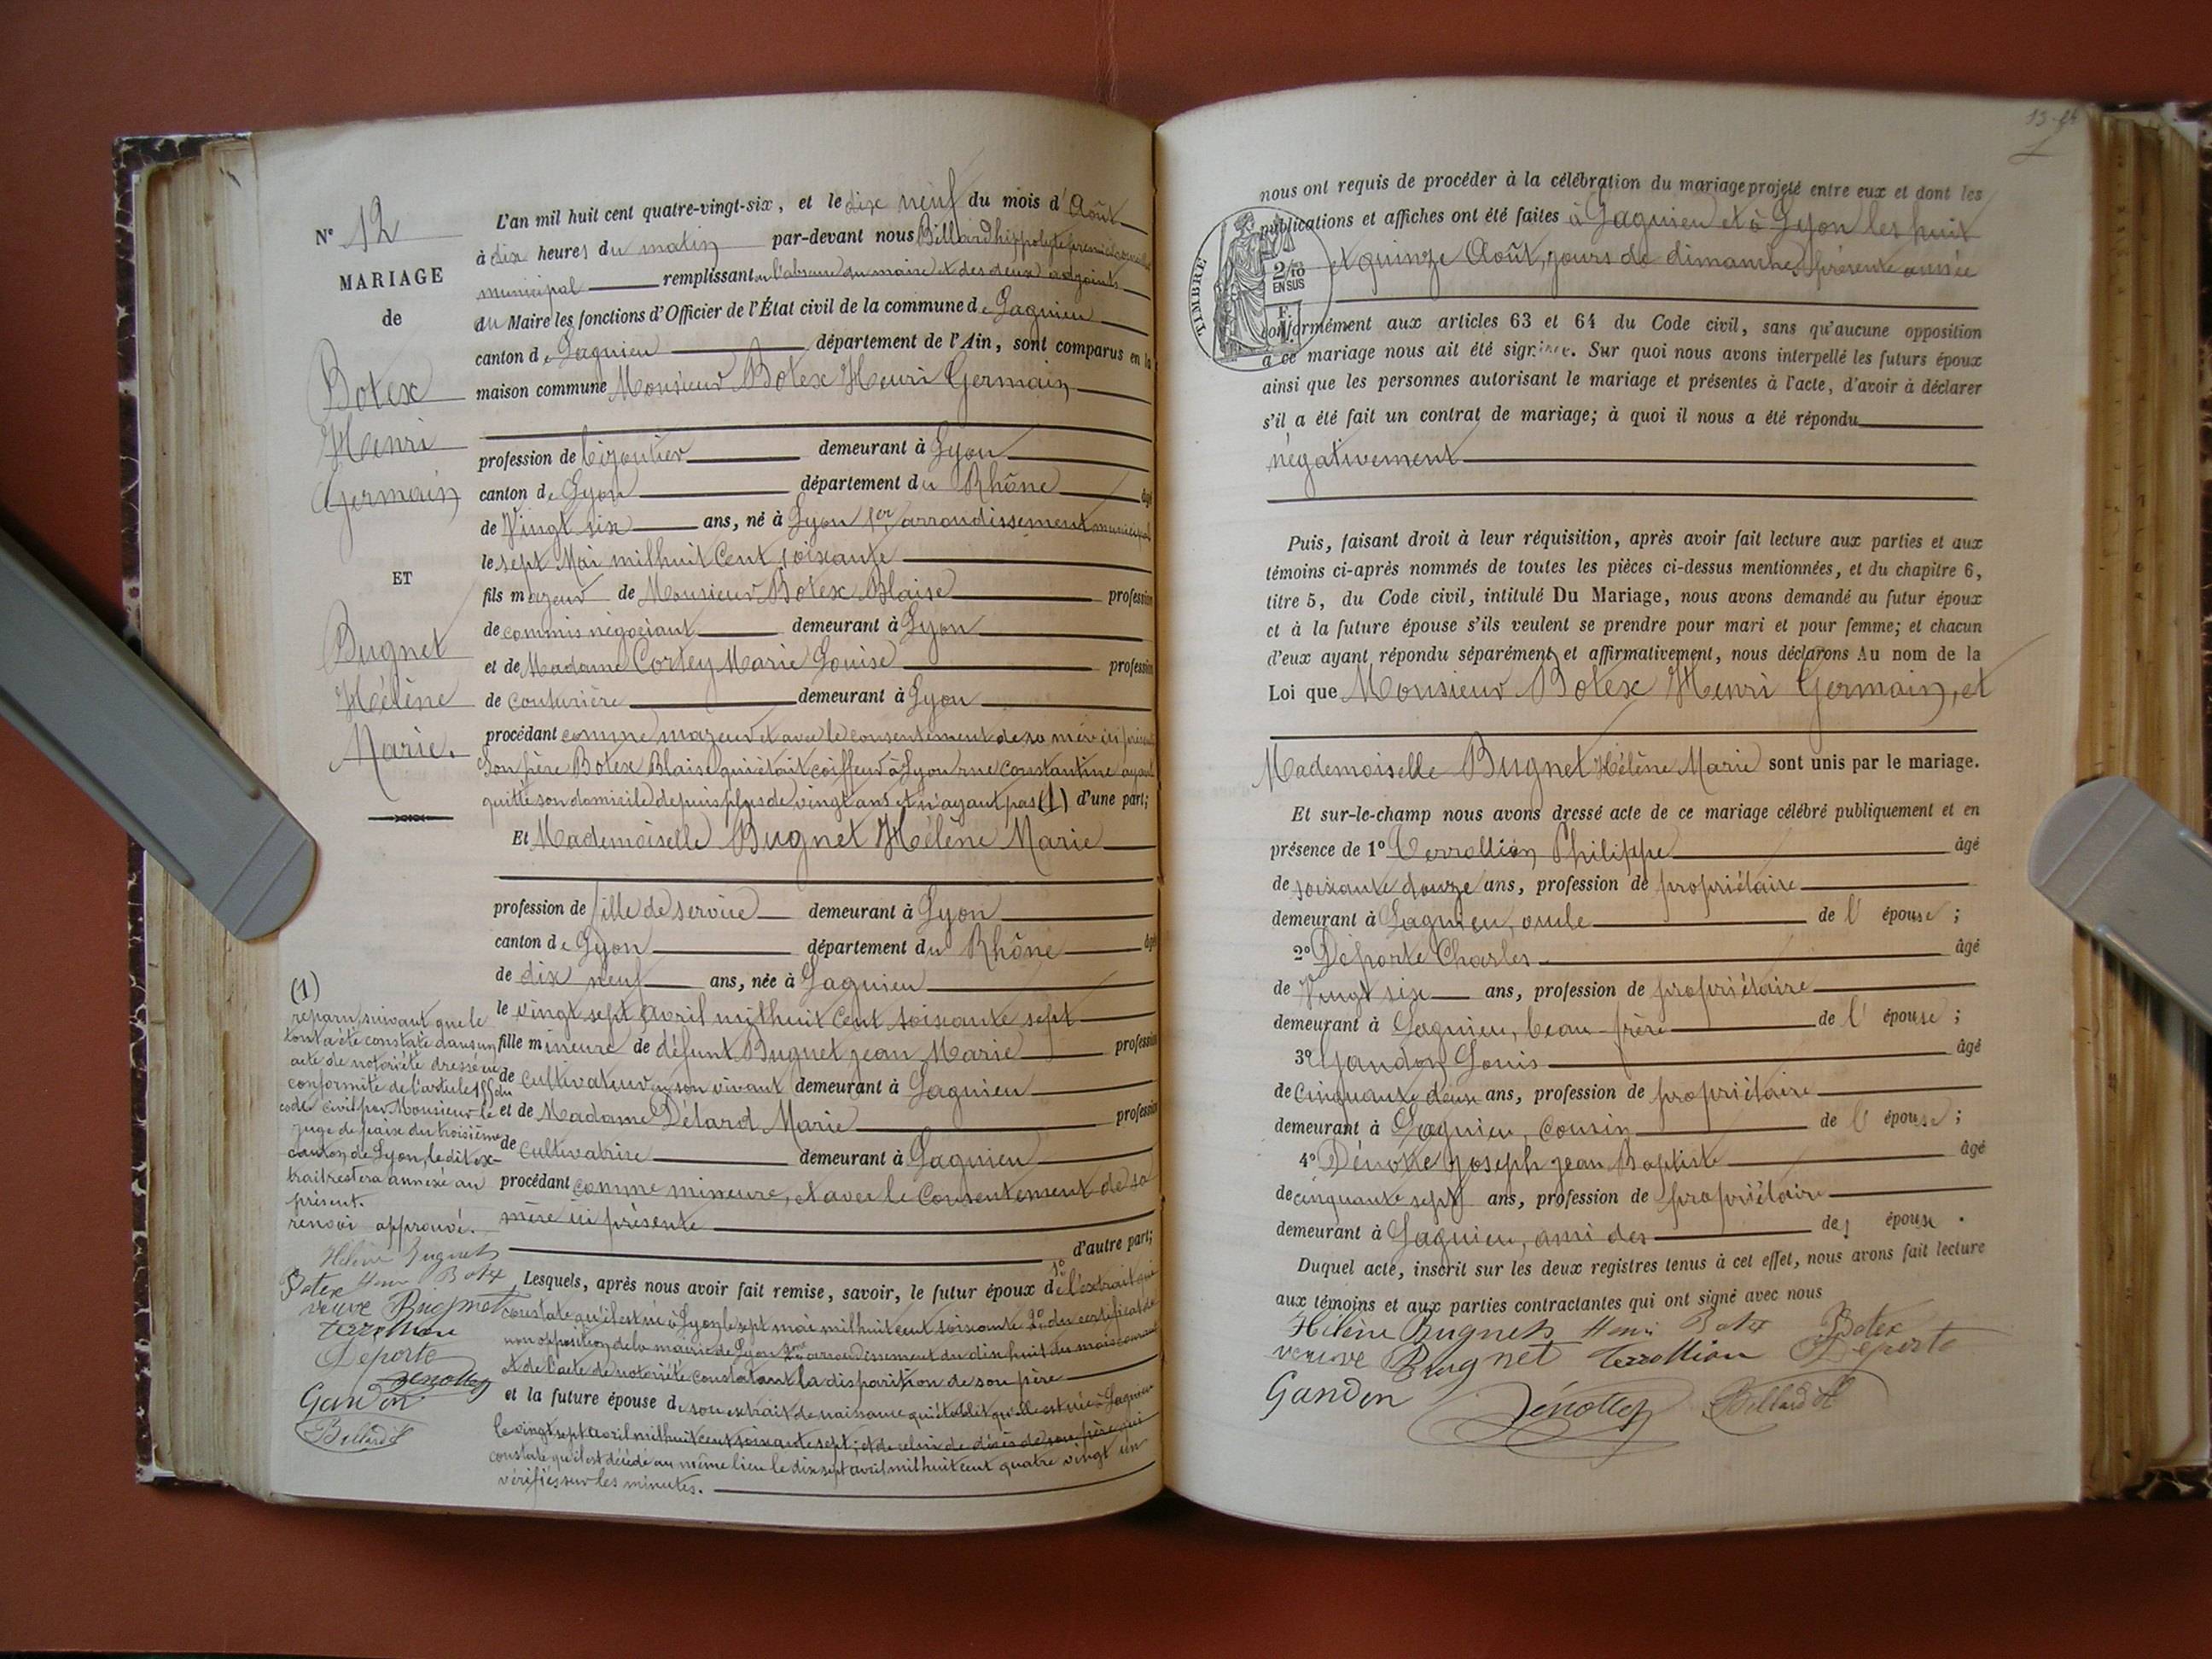 N° 12
MARIAGE
de
Botex
Henri
Germain
ET
Bugnet
Hélène
Marie.
L'an mil huit cent quatre-vingt-six, et le dix neuf du mois d'Août
à dix heures du matin par-devant nous Billard hippolyte premier conseiller
municipal remplissant en l'absence du maire et des deux adjoints
du Maire les fonctions d'Officier de l'État civil de la commune de Lagnieu
canton de Lagnieu département de l'Ain, sont comparus en la
maison commune Monsieur Botex Henri Germain
profession de bijoutier demeurant à Lyon
canton de Lyon département du Rhône âgé
de Vingt six ans, né à Lyon 1er arrondissement municipal
le sept Mai mil huit Cent soixante
fils majeur de Monsieur Botex Blaise profession
de commis négociant demeurant à Lyon
et de Madame Cortey Marie Louise profession
de couturière demeurant à Lyon
procédant comme majeur et avec le consentement de sa mère ici présente
Son père Botex Blaise qui était coiffeur à Lyon rue Constantine ayant
quitté son domicile depuis plus de vingt ans et n'ayant pas (1) d'une part;
Et Mademoiselle Bugnet Hélène Marie
profession de fille de service demeurant à Lyon
canton de Lyon département du Rhône âgé
de dix neuf ans, née à Lagnieu
le vingt sept avril mil huit Cent soixante sept
fille mineure de défunt Bugnet jean Marie profession
de cultivateur en son vivant demeurant à Lagnieu
et de Madame Détard Marie profession
de Cultivatrice demeurant à Lagnieu
procédant comme mineure, et avec le Consentement de sa
mère ici présente
d'autre part;
Lesquels, après nous avoir fait remise, savoir, le futur époux de 1° l'extrait qui
constate qu'il est né à Lyon le sept mai mil huit cent soixante 2° du certificat de
non opposition de la mairie de Lyon 2me arrondissement du dix huit du mois courant
et de l'acte de notoriété constatant la disparition de son père
et la future épouse de son extrait de naissance qui établit qu'elle est née à Lagnieu
le vingt sept avril mil huit cent soixante sept; et de celui de décès de son père qui
constate qu'il est décédé au même lieu le dix sept avril mil huit cent quatre vingt un
vérifiés sur les minutes.
(1)
reparu, suivant que le
tout a été constaté dans un
acte de notoriété dressé en
conformité de l'article 155 du
code civil par Monsieur le
juge de paix du troisième
canton de Lyon, le dit ex-
trait restera annexé au
présent.
renvoi approuvé.
Hélène Bugnet
Botex Henri Botex
veuve Bugnet
terrollion
Deporte
Denolley
Gandon
Billard H
13-24
nous ont requis de procéder à la célébration du mariage projeté entre eux et dont les
publications et affiches ont été faites à Lagnieu et à Lyon les huit
et quinze Août, jours de dimanche, présente année
TIMBRE
2/10
EN SUS
F.
conformément aux articles 63 et 64 du Code civil, sans qu'aucune opposition
à ce mariage nous ait été signifiée. Sur quoi nous avons interpellé les futurs époux
ainsi que les personnes autorisant le mariage et présentes à l'acte, d'avoir à déclarer
s'il a été fait un contrat de mariage; à quoi il nous a été répondu
négativement
Puis, faisant droit à leur réquisition, après avoir fait lecture aux parties et aux
témoins ci-après nommés de toutes les pièces ci-dessus mentionnées, et du chapitre 6,
titre 5, du Code civil, intitulé Du Mariage, nous avons demandé au futur époux
et à la future épouse s'ils veulent se prendre pour mari et pour femme; et chacun
d'eux ayant répondu séparément et affirmativement, nous déclarons Au nom de la
Loi que Monsieur Botex Henri Germain, et
Mademoiselle Bugnet Hélène Marie sont unis par le mariage.
Et sur-le-champ nous avons dressé acte de ce mariage célébré publiquement et en
présence de 1° Terrollion Philippe âgé
de soixante douze ans, profession de propriétaire
demeurant à Lagnieu, oncle de l'épouse;
2° Déporte Charles âgé
de Vingt six ans, profession de propriétaire
demeurant à Lagnieu, beau-frère de l'épouse;
3° Gandon Louis âgé
de cinquante deux ans, profession de propriétaire
demeurant à Lagnieu, Cousin de l'épouse;
4° Joseph jean Baptiste âgé
de cinquante sept ans, profession de propriétaire
demeurant à Lagnieu, ami des des époux.
Duquel acte, inscrit sur les deux registres tenus à cet effet, nous avons fait lecture
aux témoins et aux parties contractantes qui ont signé avec nous
Hélène Bugnet Henri Botex Botex
veuve Bugnet terrollion Deporte
Gandon Denolley Billard H